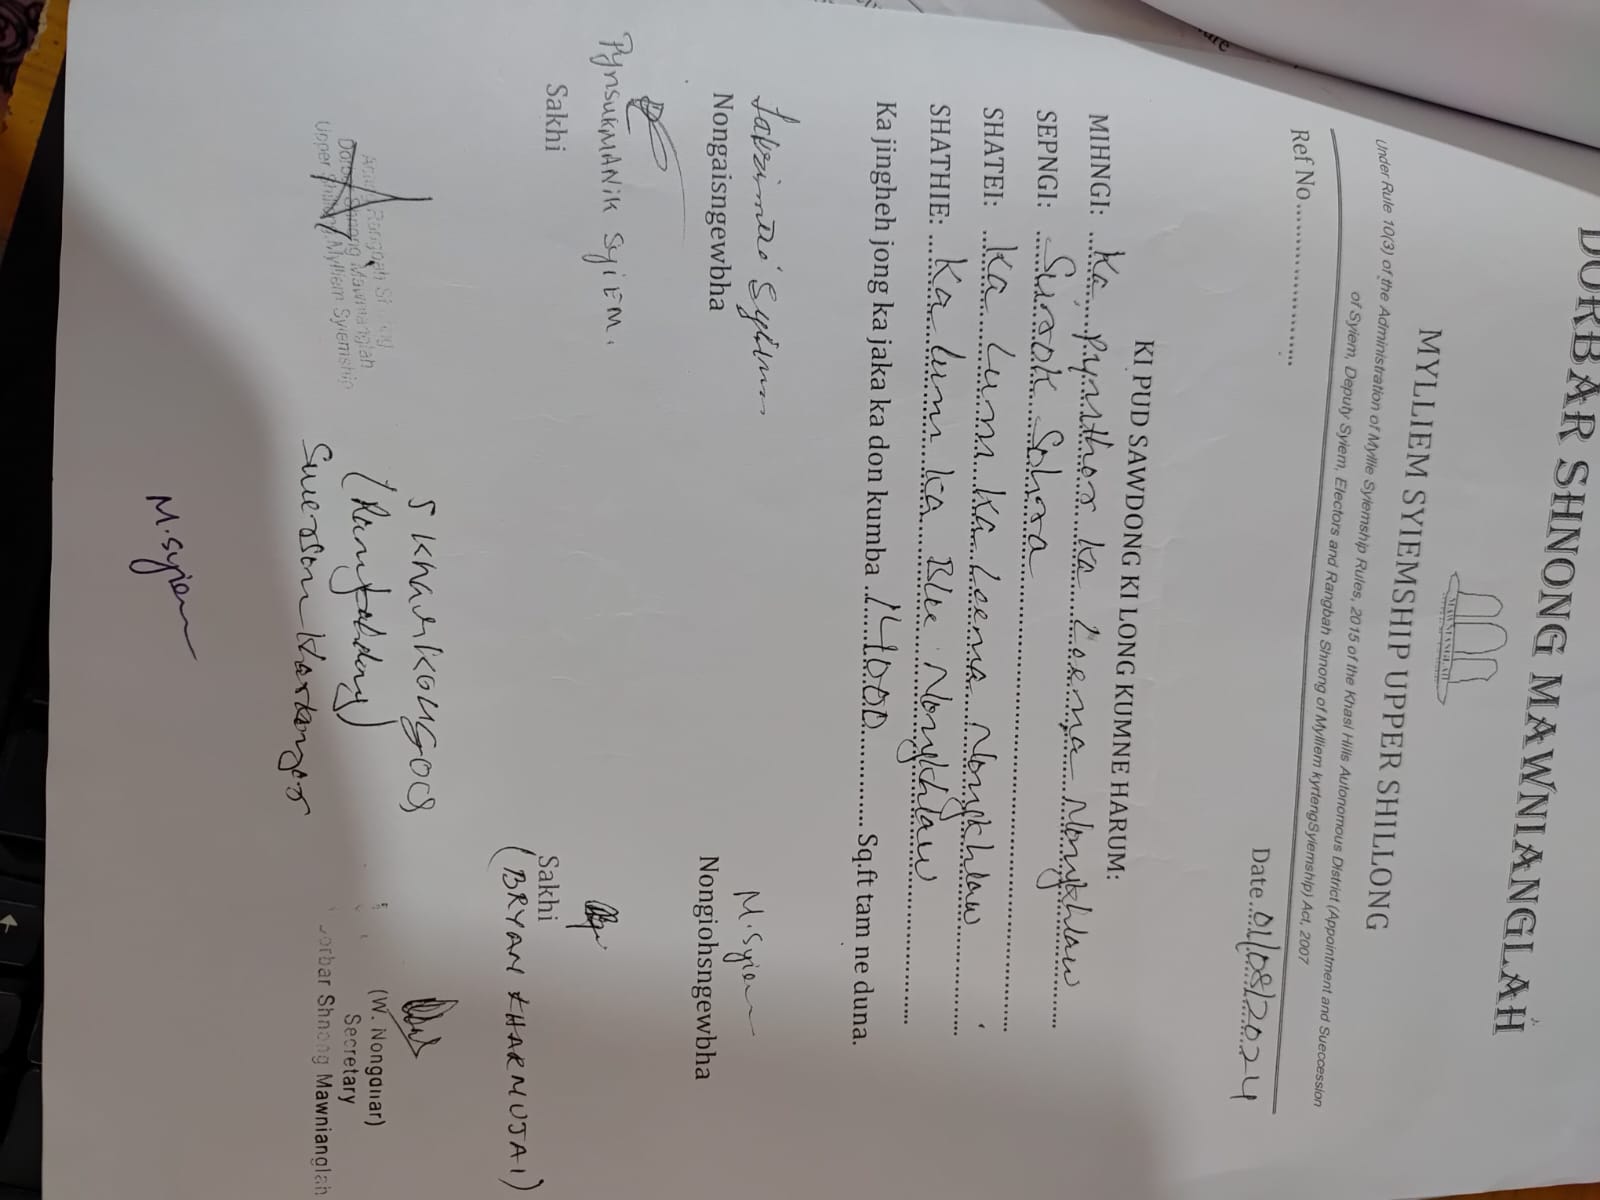 DURBAR SHNONG MAWNIANGLAH
MAWNIANGLAH
MYLLIEM SYIEMSHIP UPPER SHILLONG
Under Rule 10(3) of the Administration of Myllie Syiemship Rules, 2015 of the Khasi Hills Autonomous District (Appointment and Suecession
of Syiem, Deputy Syiem, Electors and Rangbah Shnong of Mylliem kyrtengSyiemship) Act, 2007
Ref No.................... Date 01/08/2024
KI PUD SAWDONG KI LONG KUMNE HARUM:
MIHNGI: Ka Pynthor Ka Leena Nongkhlaw
SEPNGI: Surok Sohra
SHATEI: Ka Lum Ka Leena Nongkhlaw
SHATHIE: Ka Lum Ka Blue Nongkhlaw
Ka jingheh jong ka jaka ka don kumba 14000 Sq.ft tam ne duna.
M. Syiem
Nongaisngewbha Nongiohsngewbha
PYNSUKMANIK SYIEM.
Sakhi Sakhi
(BRYAN KHARMUJAI)
S KHARKONGOR
(Rangbahdong)
(W. Nongdhar)
Secretary
Dorbar Shnong Mawnianglah
Upper Shillong Mylliem Syiemship
Dorbar Shnong Mawnianglah
M. Syiem